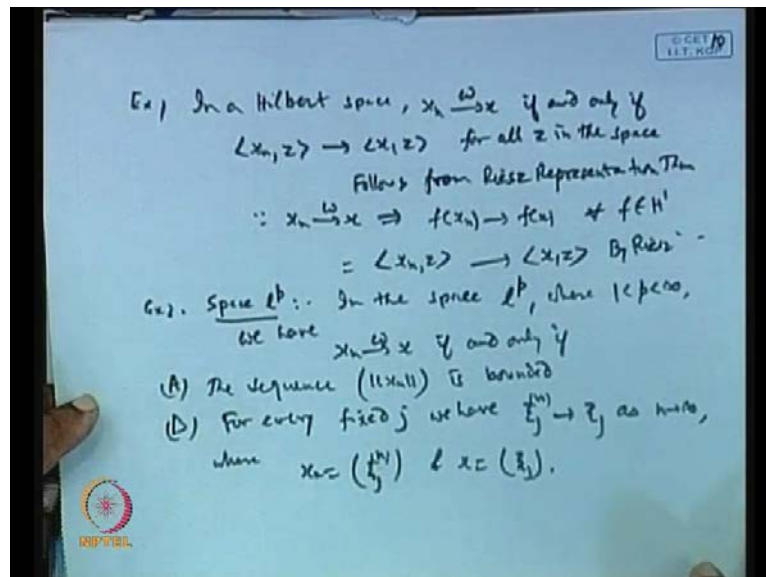 © CET
I.I.T. KGP
Ex, In a Hilbert space, xₙ —w→ x if and only if
<xₙ, z> → <x, z> for all z in the space
Follows from Riesz Representation Thm
∵ xₙ —w→ x ⇒ f(xₙ) → f(x) ∀ f ∈ H'
= <xₙ, z> → <x, z> By Riesz
Ex2. Space lᵖ :. In the space lᵖ, where 1<p<∞,
we have xₙ —w→ x if and only if
(A) The sequence (||xₙ||) is bounded
(B) For every fixed j we have ξⱼ⁽ⁿ⁾ → ξⱼ as n→∞,
where xₙ = (ξⱼ⁽ⁿ⁾) & x = (ξⱼ).
NPTEL